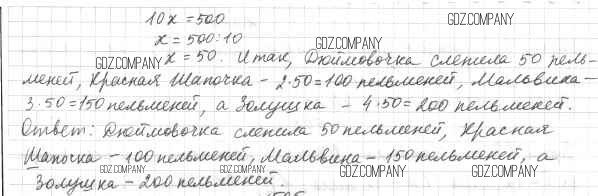 10x = 500
GDZ.COMPANY
x = 500:10
GDZ.COMPANY
GDZ.COMPANY
x = 50. Итак, Дюймовочка слепила 50 пель-
меней, Красная Шапочка - 2·50=100 пельменей, Мальвина -
3·50=150 пельменей, а Золушка - 4·50=200 пельменей.
Ответ: Дюймовочка слепила 50 пельменей, Красная
Шапочка - 100 пельменей, Мальвина - 150 пельменей, а
GDZ.COMPANY GDZ.COMPANY GDZ.COMPANY GDZ.COMPANY
Золушка - 200 пельменей.